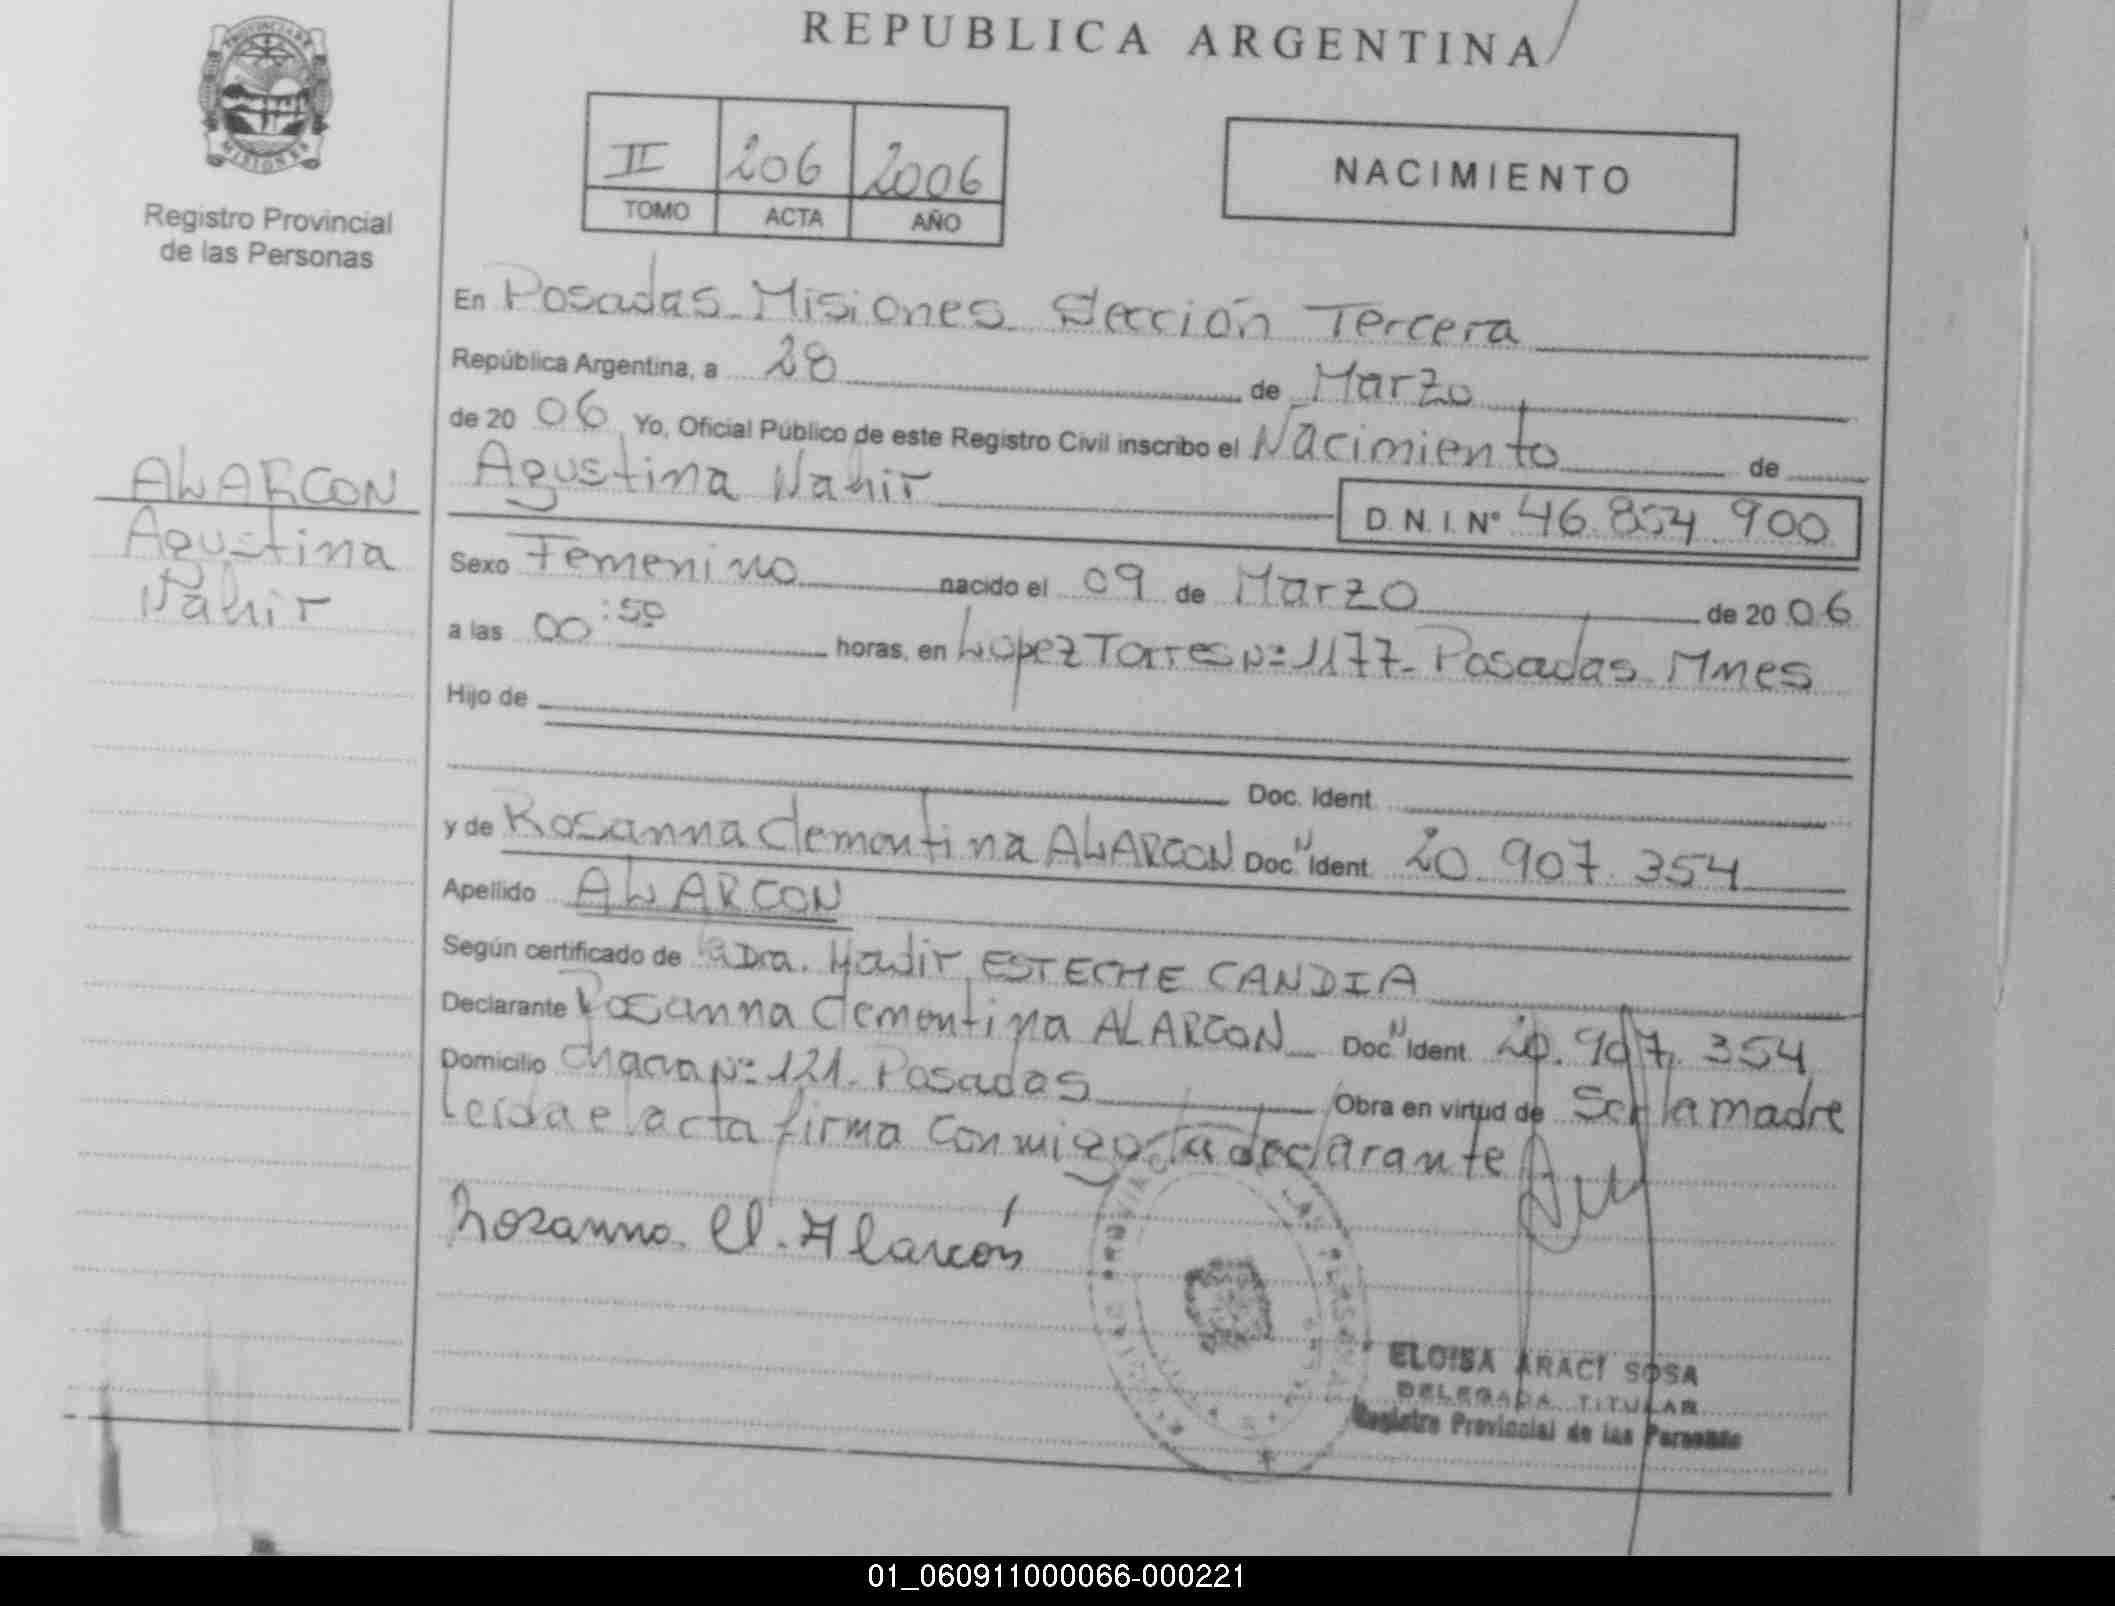 REPUBLICA ARGENTINA
PROVINCIA DE
MISIONES
Registro Provincial
de las Personas
II 206 2006
TOMO ACTA AÑO
NACIMIENTO
ALARCON
Agustina
Nahir
En Posadas Misiones Sección Tercera
República Argentina, a 28 de Marzo
de 20 06 Yo, Oficial Público de este Registro Civil inscribo el Nacimiento de
Agustina Nahir D.N.I. Nº 46.854.900
Sexo Femenino nacido el 09 de Marzo de 20 06
a las 00:50 horas, en Lopez Torres Nº 1177 - Posadas - Mnes
Hijo de
Doc. Ident.
y de Rosanna Clementina ALARCON Doc. N Ident. 20.907.354
Apellido ALARCON
Según certificado de la Dra. ESTECHE CANDIA
Declarante Rosanna Clementina ALARCON Doc. N Ident. 20.907.354
Domicilio Chacra Nº 121. Posadas Obra en virtud de Ser la madre
Leida el acta firma conmigo la declarante
Rosanna Cl. Alarcón
ELOISA ARACI SOSA
DELEGADA TITULAR
Registro Provincial de las Personas
01_060911000066-000221